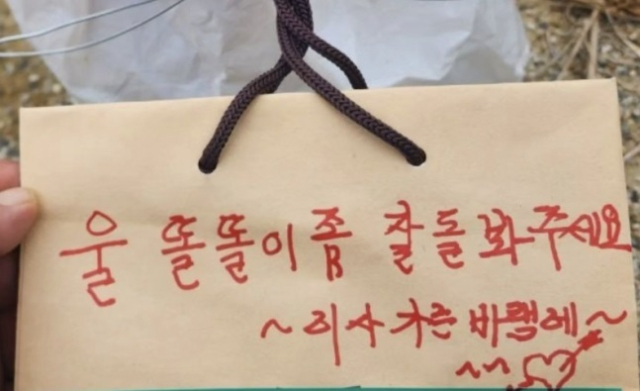 울 똘똘이 좀 잘 돌봐주세요
~이사 가는 바램에~